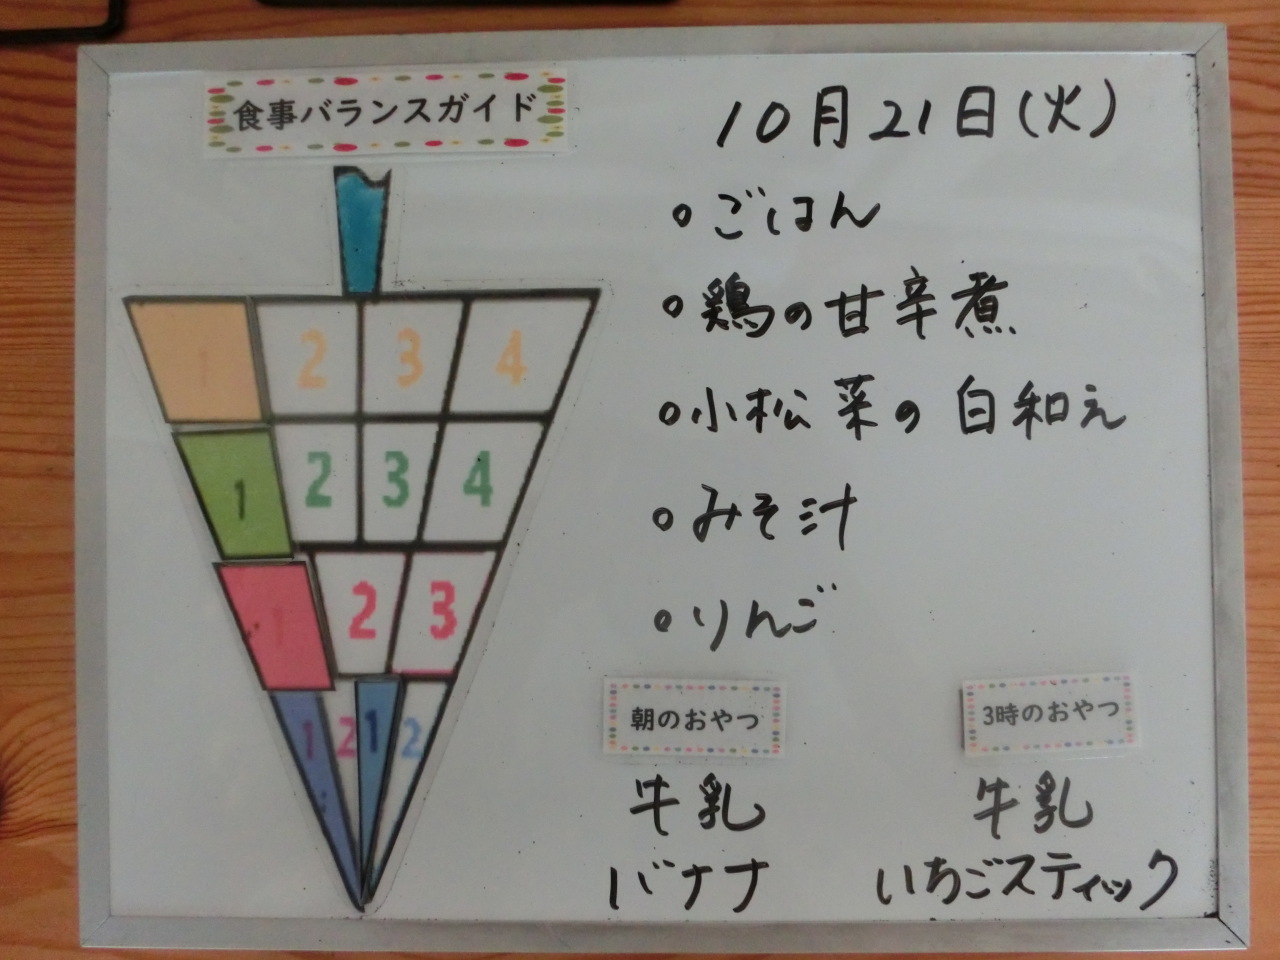 食事バランスガイド
10月21日(火)
。ごはん
。鶏の甘辛煮
。小松菜の白和え
。みそ汁
。りんご
1 2 3 4
1 2 3 4
1 2 3
1 2 1 2
朝のおやつ
牛乳
バナナ
3時のおやつ
牛乳
いちごスティック